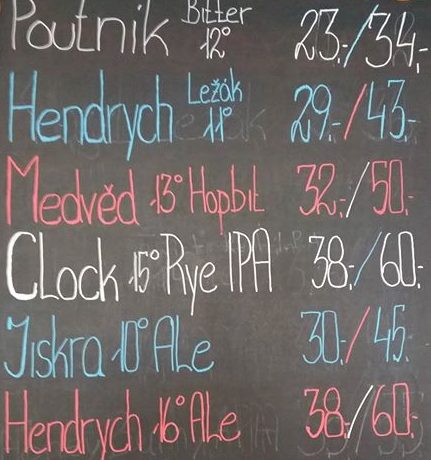 Poutník Bitter 12° 23,-/34,-
Hendrych Ležák 11° 29,-/43,-
Medvěd 13° Hopbit 32,-/50,-
CLock 15° Rye IPA 38,-/60,-
Jiskra 10° ALe 30,-/45,-
Hendrych 16° ALe 38,-/60,-